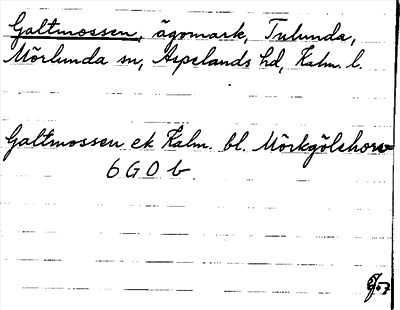 Galtmossen, ägomark, Tulunda,
Mörlunda sn, Aspelands hd, Kalm. l.
Galtmossen ek Kalm. bl. Mörkgölshorv
6 G 0 b